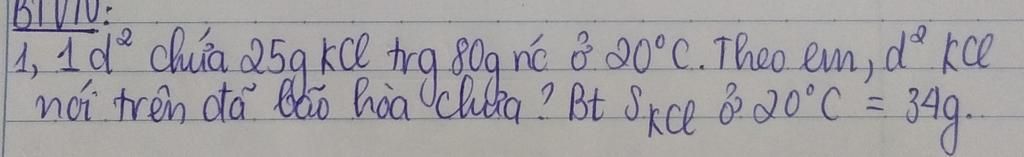 BTVN:
1, 1 d² chứa 25g KCl trg 80g nc ở 20°C. Theo em, d² KCl
nói trên đã bão hòa chưa? Bt S KCl ở 20°C = 34g.